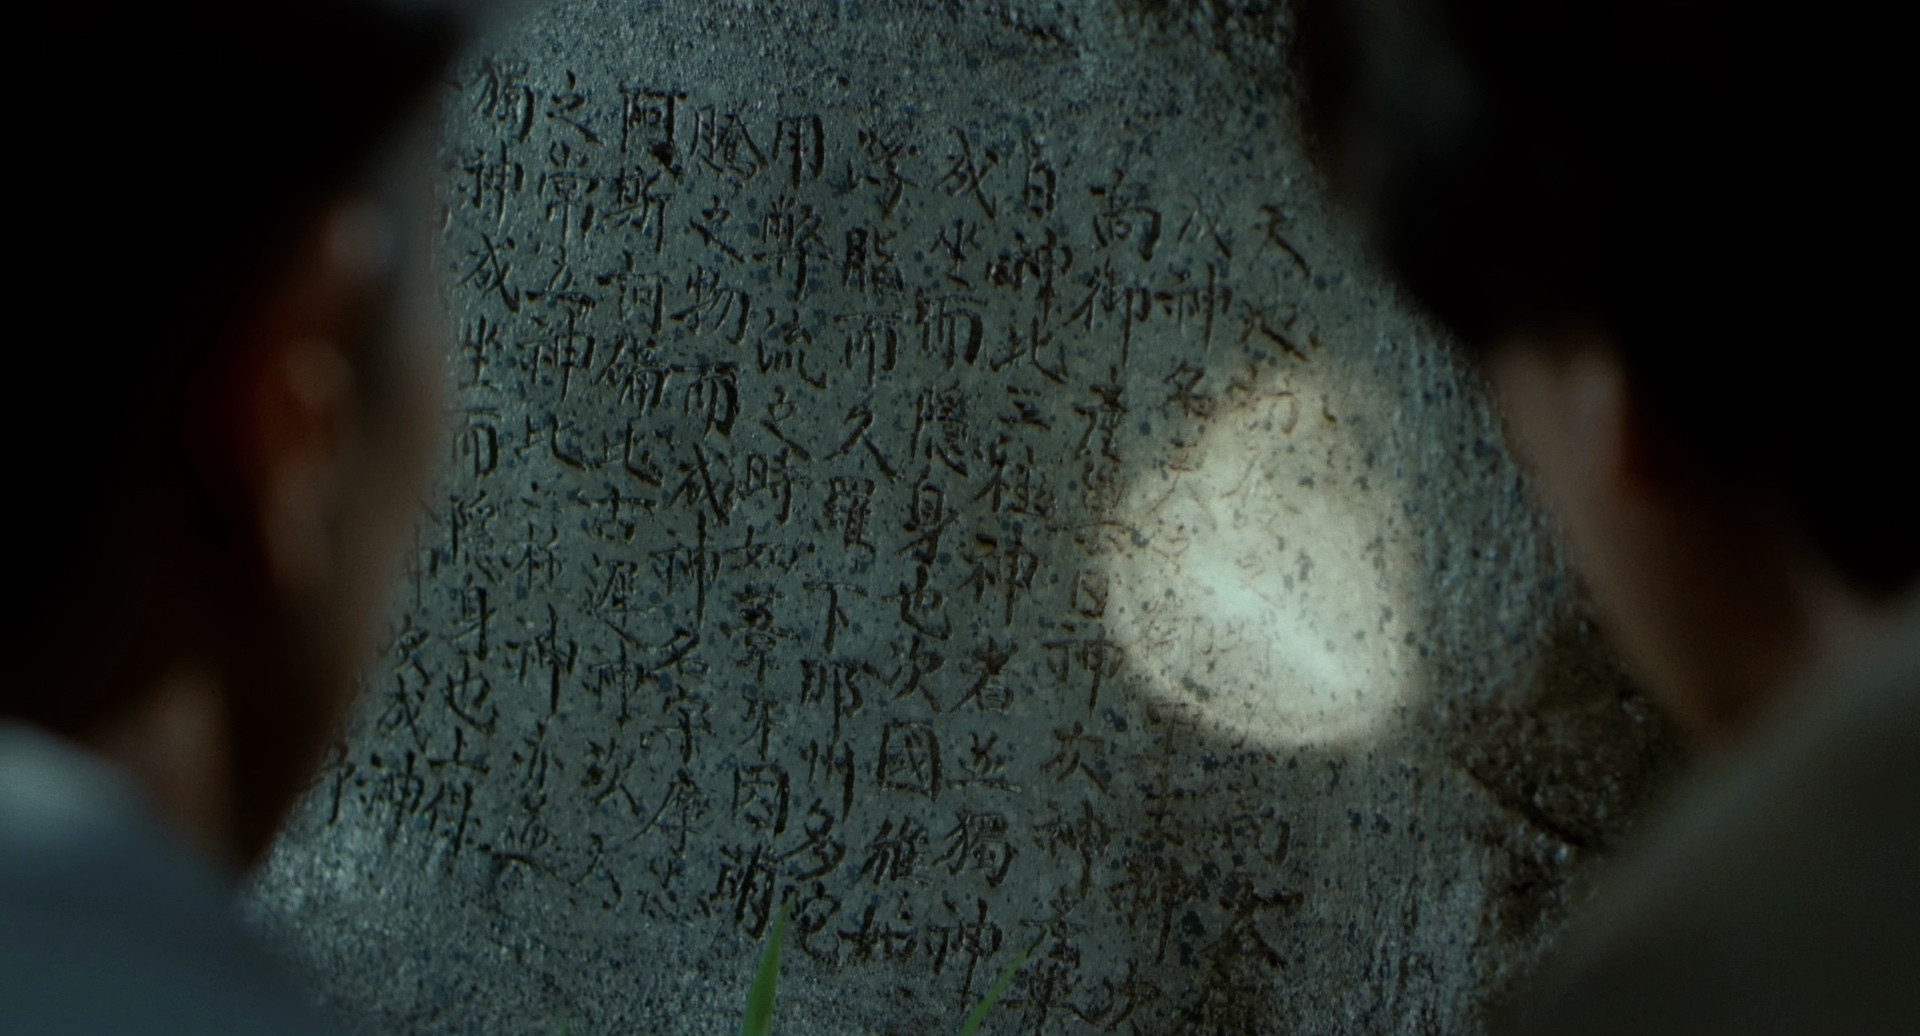 天地初發之時高天原
成神名天之御中主神次
高御產巢日神次神產巢
日神此三柱神者並獨神
成坐而隱身也次國稚如
浮脂而久羅下那州多陀
用弊流之時如葦牙因萌
騰之物而成神名宇摩志
阿斯訶備比古遲神次天
之常立神此二柱神亦並
獨神成坐而隱身也上件
神次成神